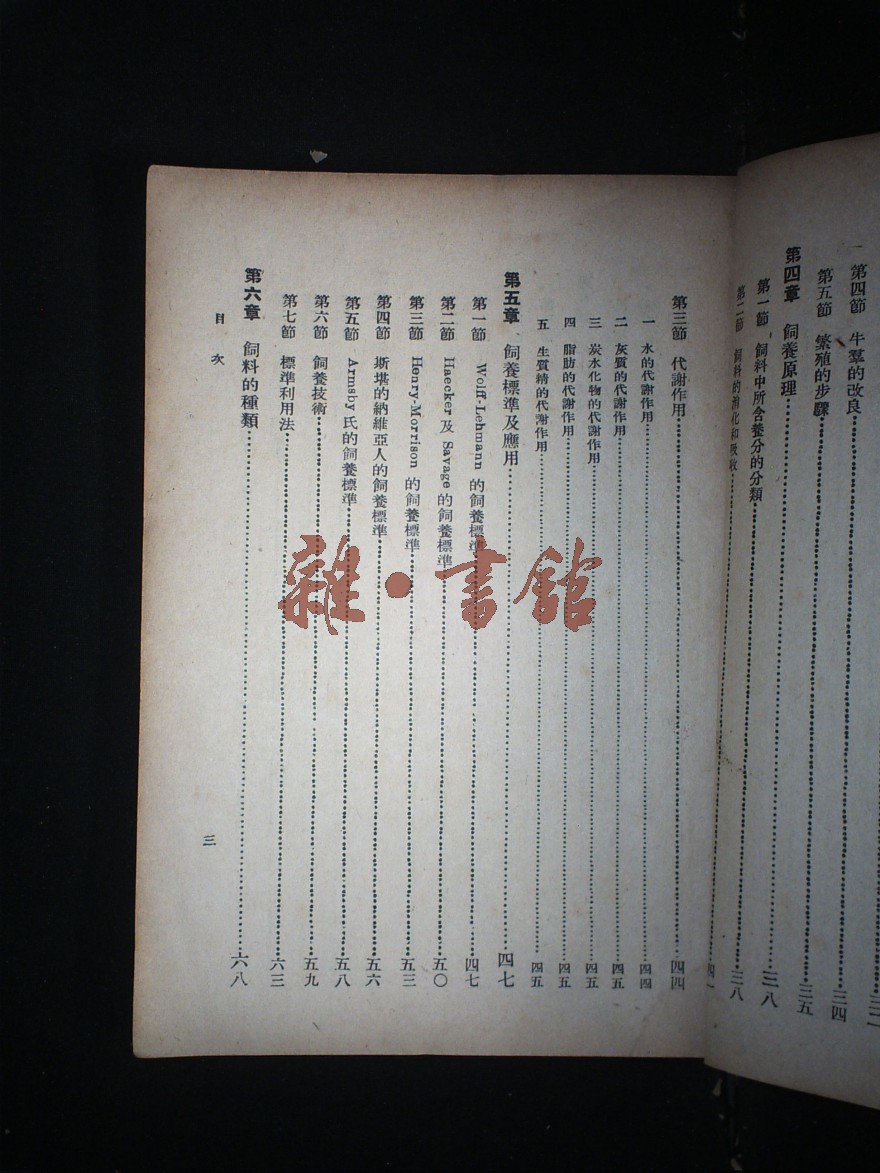 第四節 牛羣的改良……三二
第五節 繁殖的步驟……三四
第四章 飼養原理……三五
第一節 飼料中所含養分的分類……三八
第二節 飼料的消化和吸收……三八
第三節 代謝作用……四四
一 水的代謝作用……四四
二 灰質的代謝作用……四五
三 炭水化物的代謝作用……四五
四 脂肪的代謝作用……四五
五 生質精的代謝作用……四五
第五章 飼養標準及應用……四七
第一節 Wolff-Lehmann 的飼養標準……四七
第二節 Haecker 及 Savage 的飼養標準……五〇
第三節 Henry-Morrison 的飼養標準……五三
第四節 斯堪的納維亞人的飼養標準……五六
第五節 Armsby 氏的飼養標準……五八
第六節 飼養技術……五九
第七節 標準利用法……六三
第六章 飼料的種類……六八
目次
三
雜·書館